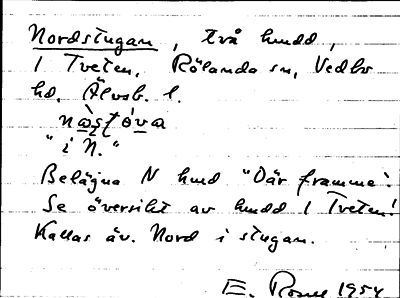 Nordstugan, två hmdd,
I Tveten, Rölanda sn, Vedbo
hd, Älvsb. l.
na̱s̱tóva
"i N."
Belägna N hmd "Där framme".
Se översikt av hmdd I Tveten!
Kallas äv. Nord i stugan.
E. 1954